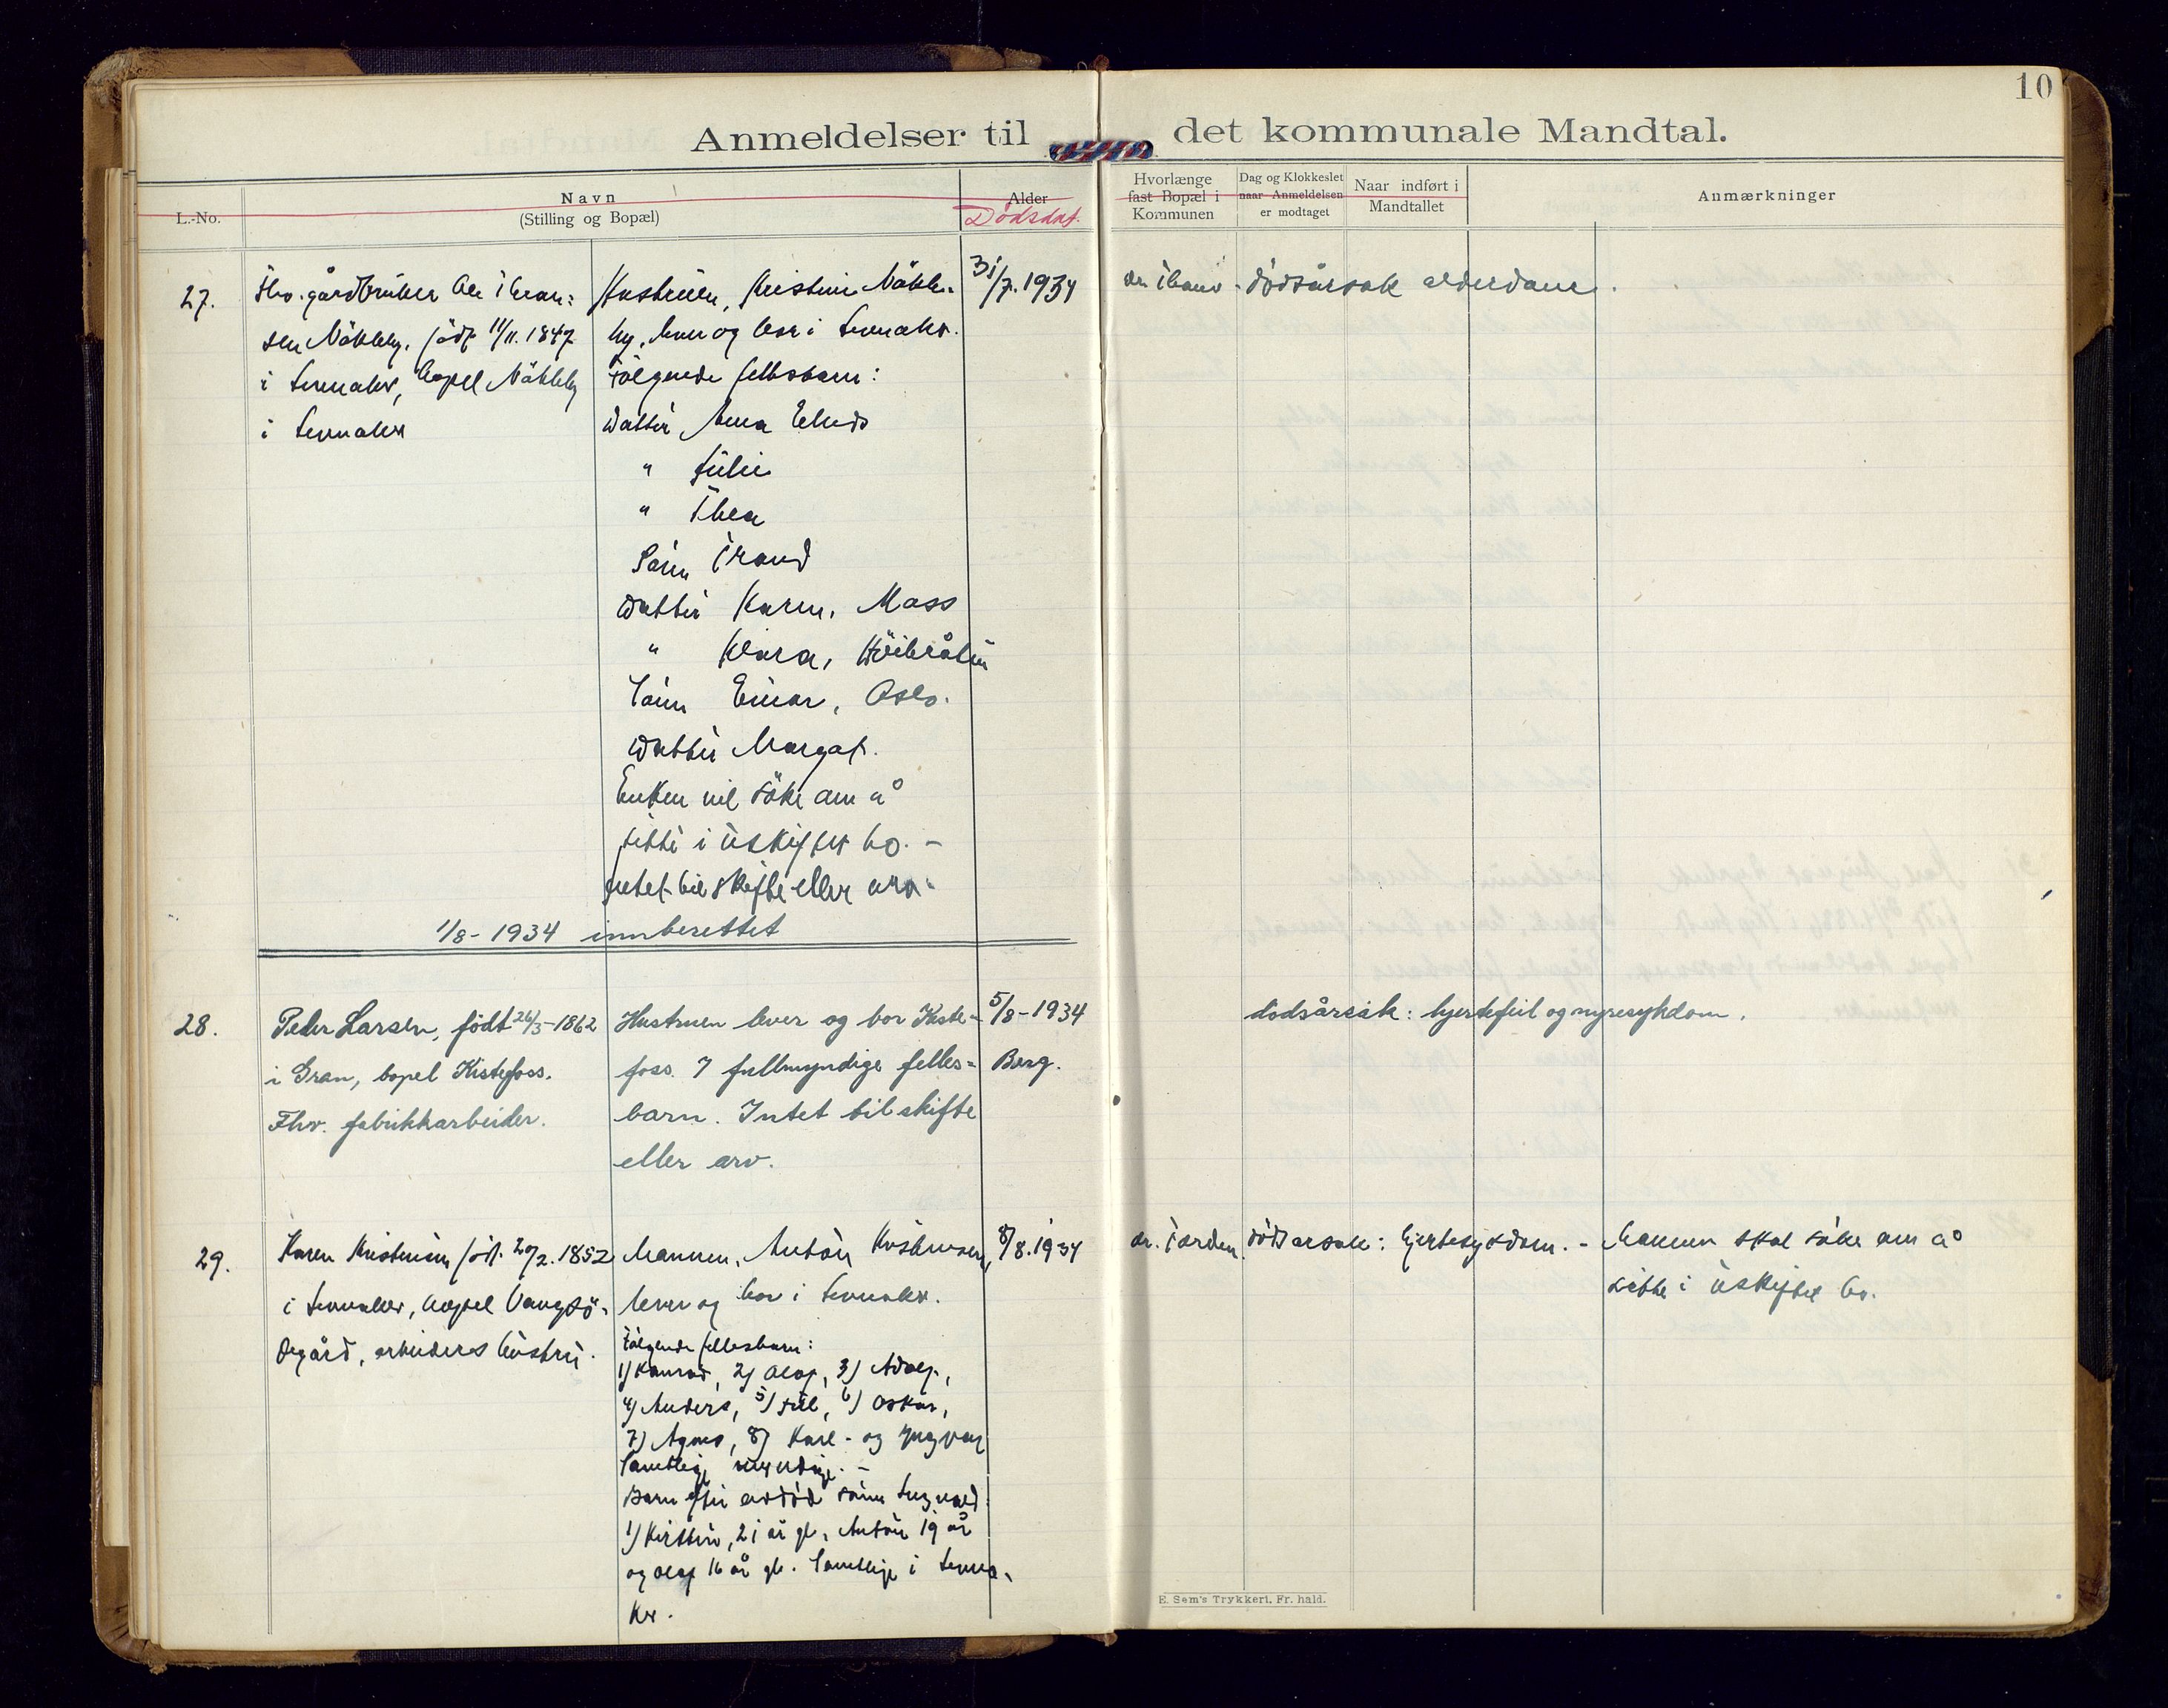 10
Anmeldelser til det kommunale Mandtal.
L.-No.
Navn
(Stilling og Bopæl)
Alder
Dødsdat.
Hvorlænge
fast Bopæl i
Kommunen
Dag og Klokkeslet
naar Anmeldelsen
er modtaget
Naar indført i
Mandtallet
Anmærkninger
27.
Fhv. gårdbruker Ole Thran=
sen Nökleby, född 11/11. 1847
i Jevnaker, bopel Nökleby
i Jevnaker
Hustruen, Kristine Nökle-
by, lever og bor i Jevnaker.
Følgende fellsbarn:
Datter Anna Elnes
" Julie
" Thea
Sönn Trond
Datter Karen, Moss
" Klara,
Sönn Einar, Oslo.
Datter Margot.
Enken vil söke om å
sitte i uskiftet bo. -
Intet til skifte eller arv.
31/7. 1934
dödsårsak alderdom.
1/8 - 1934 innberettet
28.
Peder Larsen, födt 26/5-1862
i Gran, bopel Kistefoss.
Fhv. fabrikkarbeider.
Hustruen lever og bor Kiste-
foss. 7 fullmyndige felles=
barn. Intet til skifte
eller arv.
5/8 - 1934
Berg.
dödsårsak: hjertefeil og nyresykdom.
29.
Karen Kristensen född 20/2. 1852
i Jevnaker, bopel Vangsö-
degård, arbeiders hustru.
Mannen, Anton Kristensen,
lever og bor i Jevnaker.
Følgende fellesbarn:
1) Konrad, 2) Olaf, 3) Adolf,
4) Anders, 5) Juel, 6) Oskar,
7) Agnes, 8) Karl - og Yngvar
Samtlige myndige. -
Barn efter avdöd sönn Ingvald
1) Kirsten, 21 år gl., Anton 19 år
og Olaf 16 år gl. Samtlige i Jevna-
ker.
8/8. 1934
dr. Torden. dödsårsak: hjertesykdom. -
Mannen skal söke om å
sitte i uskiftet bo.
E. Sem's Trykkeri, Fr. hald.